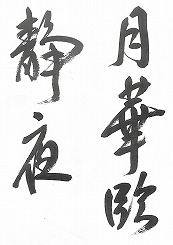 月華臨
静夜